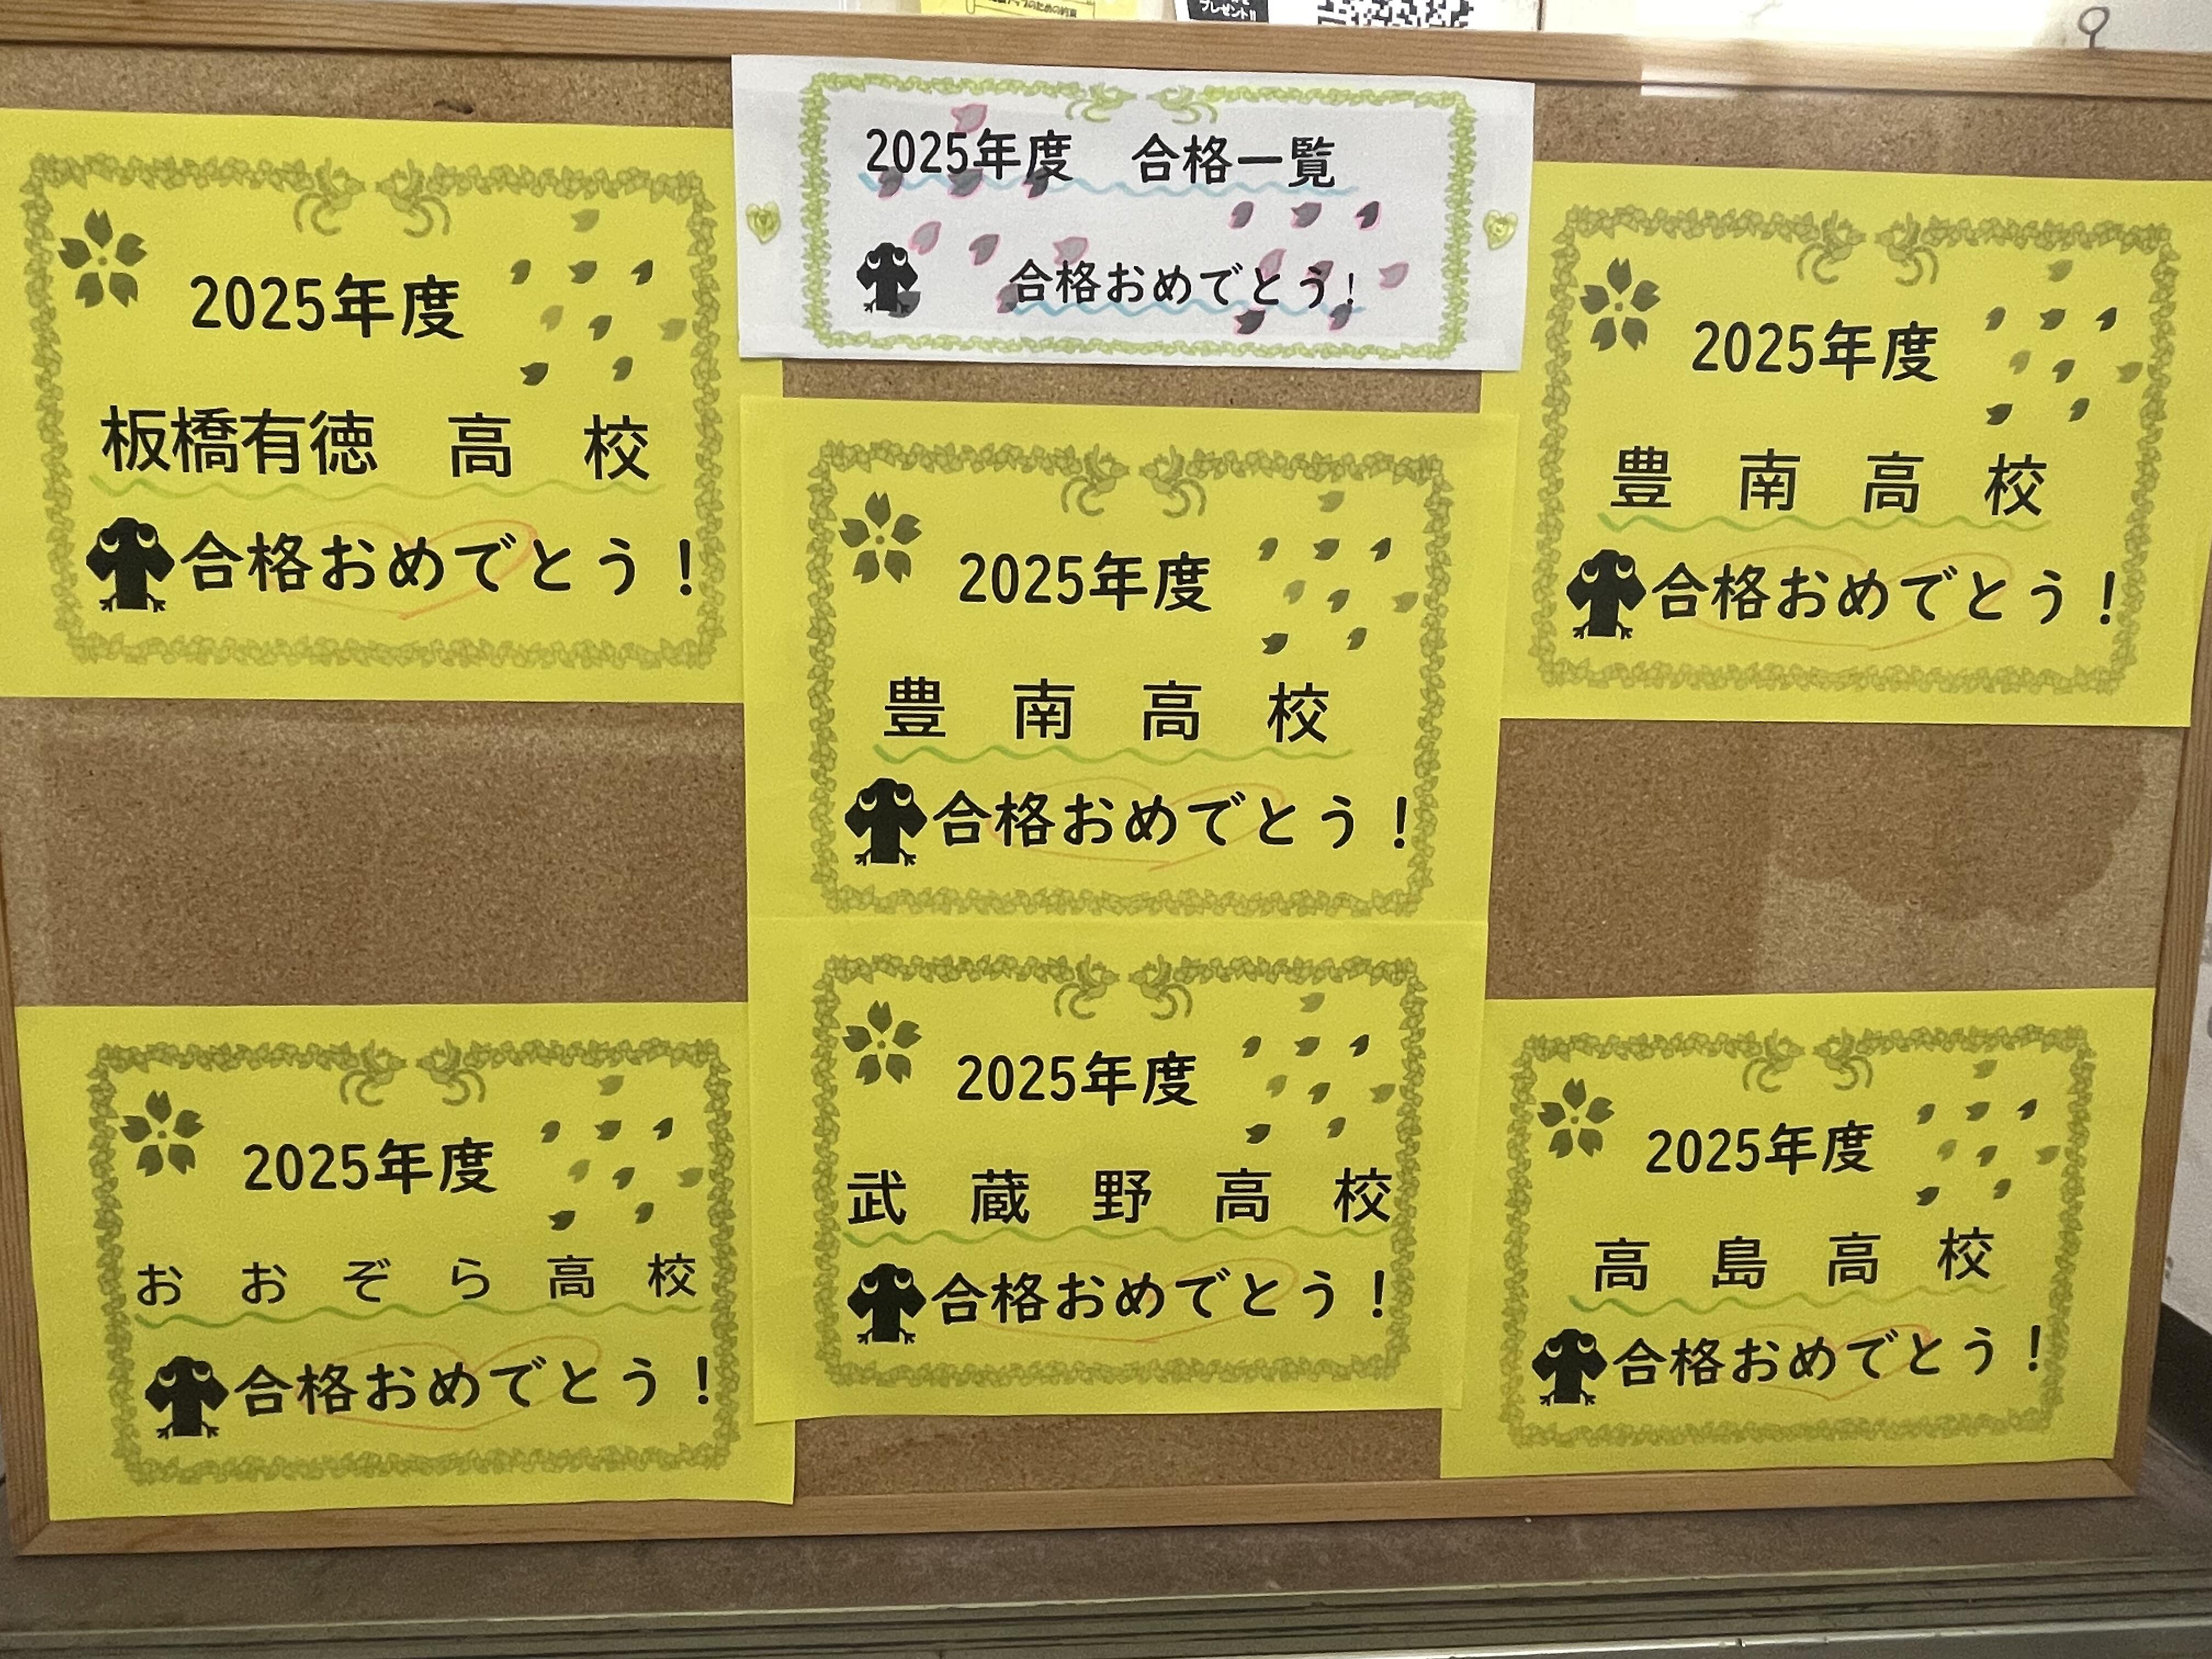 プレゼント!!
2025年度 合格一覧
合格おめでとう!
2025年度
板橋有徳 高 校
合格おめでとう!
2025年度
豊 南 高 校
合格おめでとう!
2025年度
豊 南 高 校
合格おめでとう!
2025年度
おおぞら高校
合格おめでとう!
2025年度
武 蔵 野 高 校
合格おめでとう!
2025年度
高 島 高 校
合格おめでとう!